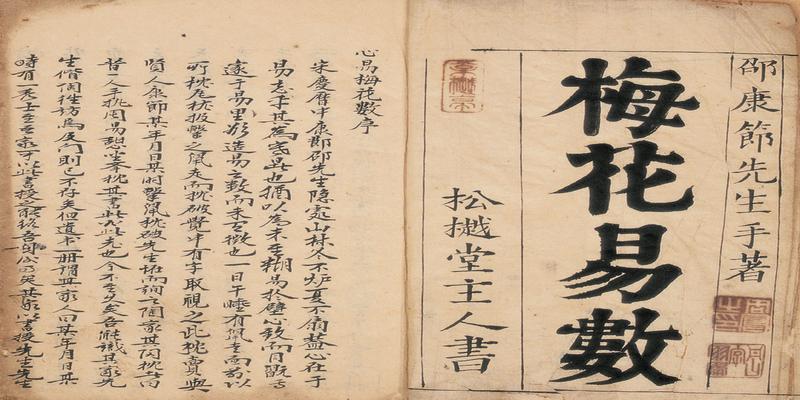 邵康節先生手著
梅花易數
松樾堂主人書
心易梅花數序
宋慶曆中康節邵先生隱處山林冬不炉夏不扇蓋心在于
易忘乎其為寒暑也猶以為未至糊易於壁心致而目翫焉
遂于易理欲造易之數而未有徵也一日午睡有鼠走而前以
所枕瓦枕投擊之鼠走而枕破覺中有字取視之此枕賣與
賢人康節某年月日某時擊鼠枕破先生怪而詢之陶家其陶枕者曰
昔一人手執周易憩坐舉枕其書此必此老也今不至久矣吾能識其家先
生偕陶往訪焉及門則已不存矣但遺書一冊謂其家人曰某年月日某
時有一秀士至吾家可以此書授之能終吾身後公乃矣其家以書授先生先生